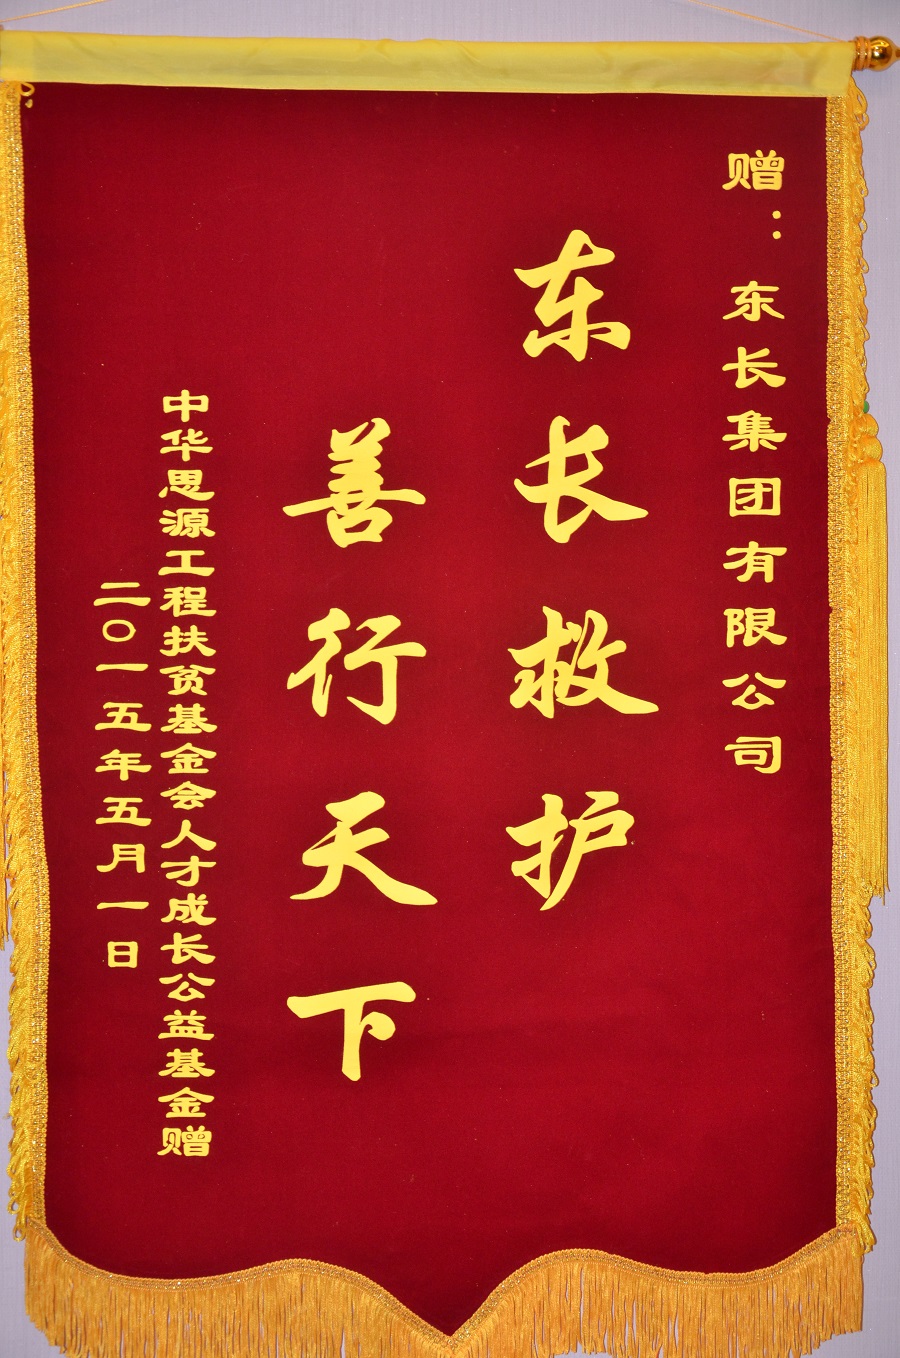 赠：东长集团有限公司
东长救护
善行天下
中华思源工程扶贫基金会人才成长公益基金赠
二〇一五年五月一日